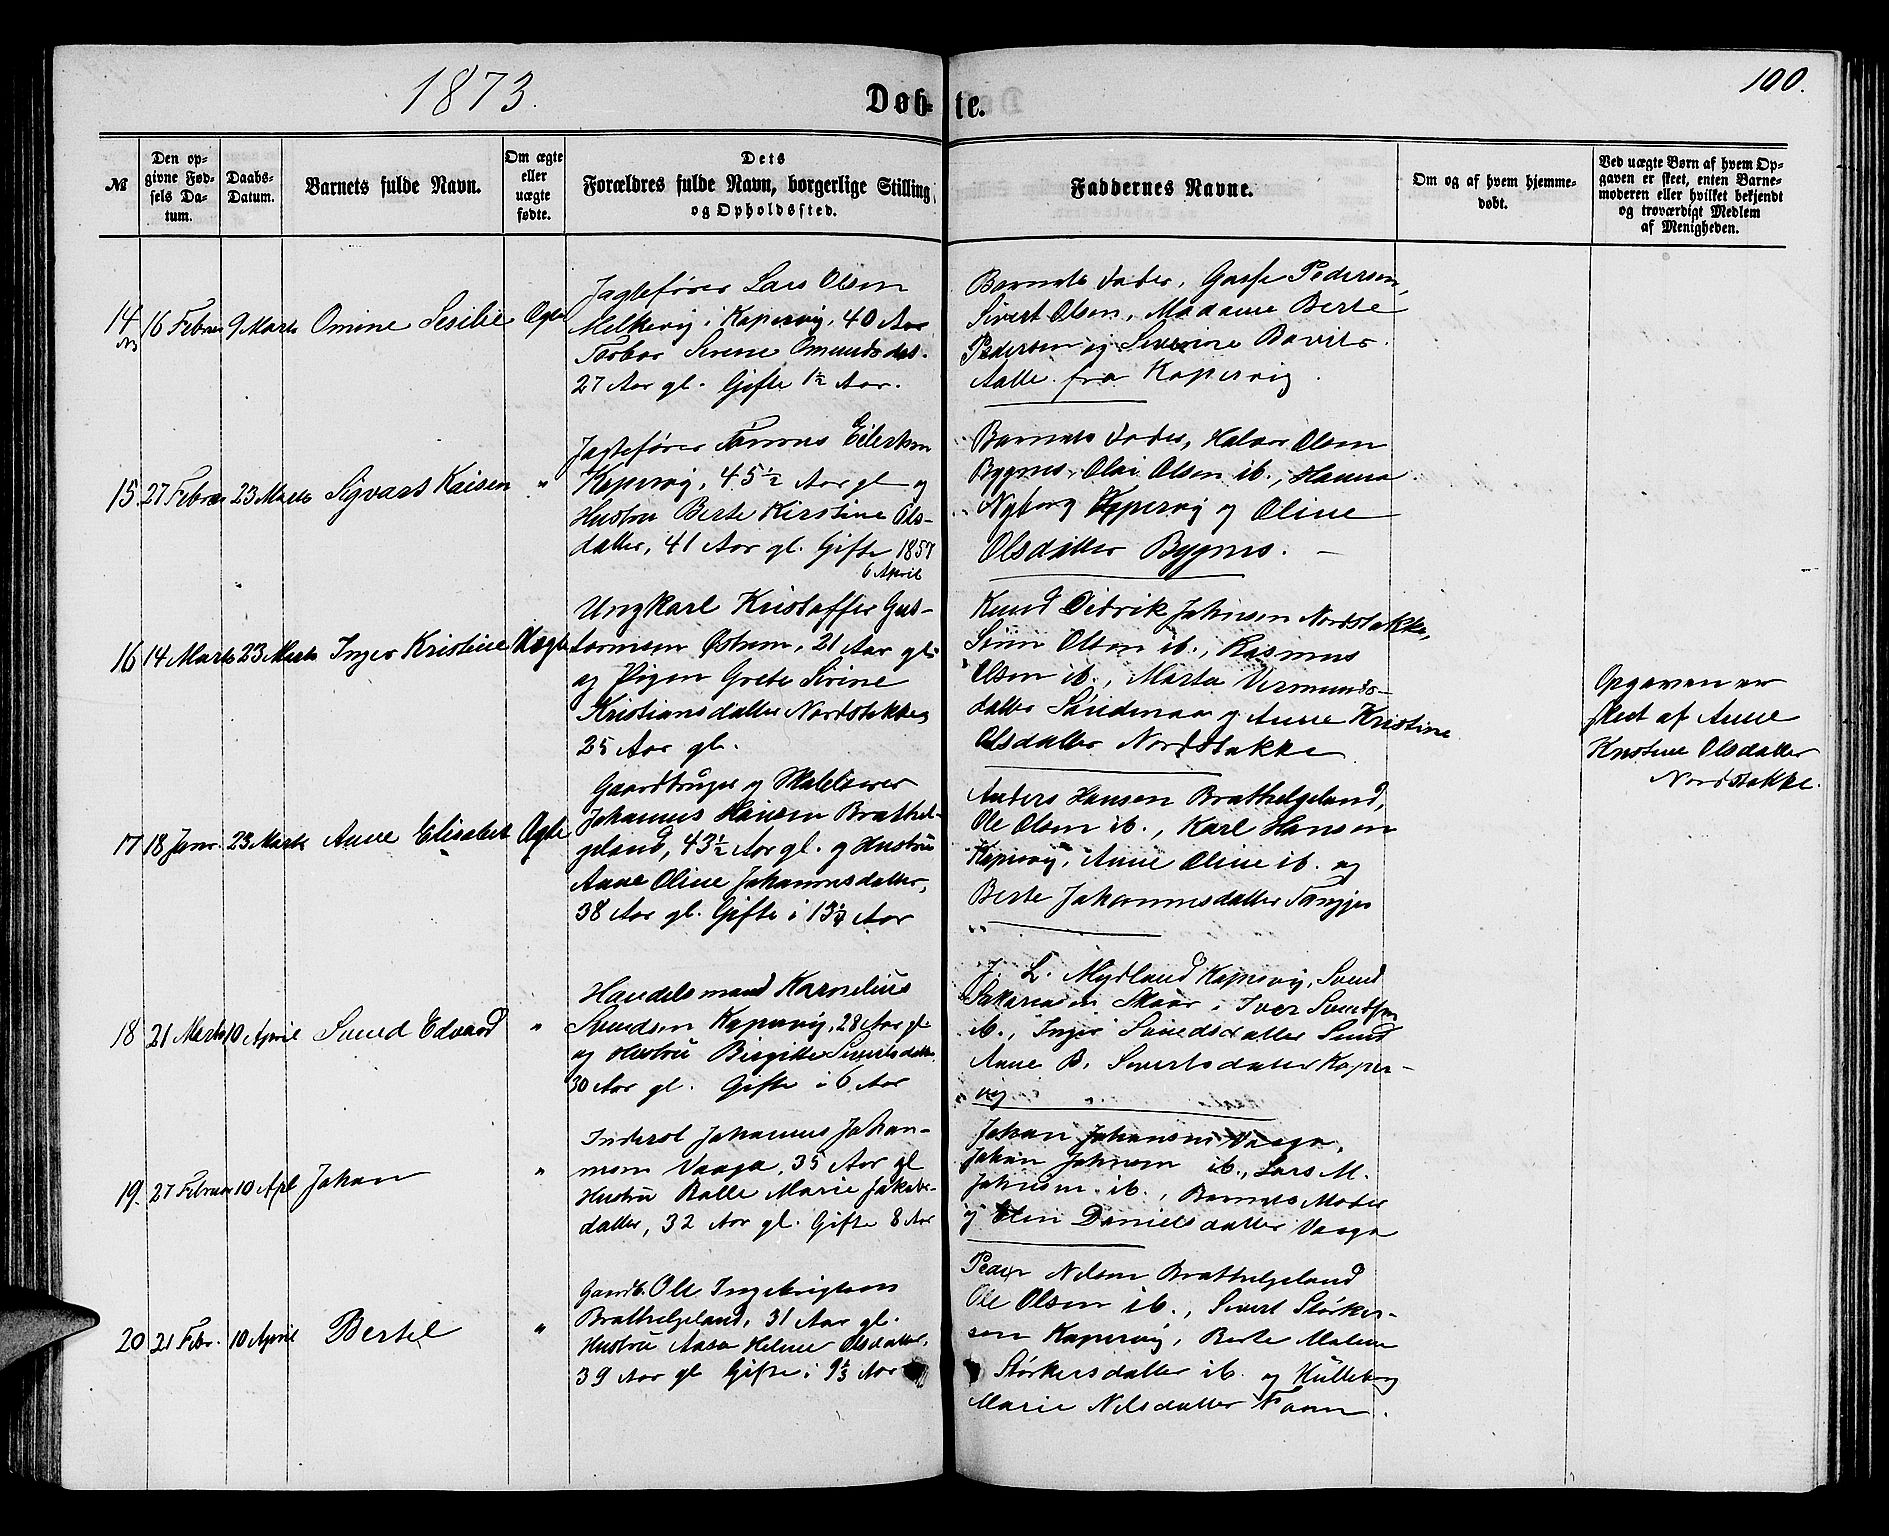 1873.
Døb-te.
100.
№
Den op-
givne Fød-
sels Da-
tum.
Daabs-
Datum.
Barnets fulde Navn.
Om ægte
eller
uægte
fødte.
Dets
Forældres fulde Navn, borgerlige Stilling
og Opholdssted.
Faddernes Navne.
Om og af hvem hjemme-
døbt.
Ved uægte Børn af hvem Op-
gaven er skeet, enten Barne-
moderen eller hvilket bekjendt
og troværdigt Medlem
af Menigheden.
14
16 Februar
9 Marts
Omine Sesilie
Ægte
Jagtefører Lars Olsen
Melkevig i Kopervig, 40 Aar
Torbor Serene Omundsdat.
27 Aar gl. Gifte 1½ Aar.
Barnets Fader, Pedersen,
Sivert Olsen, Madame Berte
Pedersen og Severine
Aalle fra Kopervig.
15.
27 Februar
23 Marts
Sigvart Kaisen
"
Jagtefører Tønnes Eilertsen
Kopervig, 45½ Aar gl og
Hustru Berte Kirstine Ols-
datter, 41 Aar gl. Gifte 1857
6 April
Barnets Fader, Halvor Olsen
Bygnes, Olai Olsen ib., Hanna
Nyborg Kopervig og Oline
Olsdatter Bygnes. —
16
14 Marts
23 Marts
Inger Kristine
Uægte
Ungkarl Kristoffer Gut-
tormsen Østrem, 21 Aar gl.
og Pigen Grete Serine
Kristiansdatter Nordstokke
25 Aar gl.
Knud Didrik Johnsen Nordstokke,
Olsen ib., Rasmus
Olsen ib., Marta Vermunds-
datter og Anne Kristine
Olsdatter Nordstokke
Opgaven er
skeet af Anne
Kristine Olsdatter
Nordstokke.
17
18 Janr.
23 Marts
Anne Elisabet
Ægte
Gaardbruger og Skoleholderer
Johannes Hansen Brathel-
geland, 43½ Aar gl. og Hustru
Anne Oline Johannesdatter,
38 Aar gl. Gifte i 13½ Aar
Anders Hansen Brathelgeland,
Ole Olsen ib., Karl Hansen
Kopervig, Anne Oline ib. og
Berte Johannesdatter
18
21 Marts
10 April
Svend Edvard
"
Handelsmand Kornelius
Svendsen Kopervig, 28 Aar gl
og Hustru Birgitte Sivertsdatter
30 Aar gl. Gifte i 6 Aar
J. L. Mydland Kopervig, Svend
Sakariasen Skaar, Iver Svendsen
ib., Inger Svendsdatter Sund
Anne B. Sivertsdatter Koper-
vig
19.
27 Februar
10 Apl
Johan
"
Inderst Johannes Johan-
nesen Vaaga, 35 Aar gl
Hustru Malle Marie Jakobs-
datter, 32 Aar gl. Gifte 8 Aar
Johan Johansen Vaaga,
Johan Johnsen ib., Lars M.
Johnsen ib., Barnets Moder
og Elen Danielsdatter Vaaga
20
21 Febr.
10 April
Bertil
"
Gaardb. Ole Ingebrigtsen
Brathelgeland, 31 Aar gl.
Hustru Aasa Helene Olsdatter,
39 Aar gl Gifte i 9½ Aar
Peder Nilsen Brathelgeland
Ole Olsen ib., Sivert Størker-
sen Kopervig, Berte Malene
Størkersdatter ib. og
Marie Nilsdatter